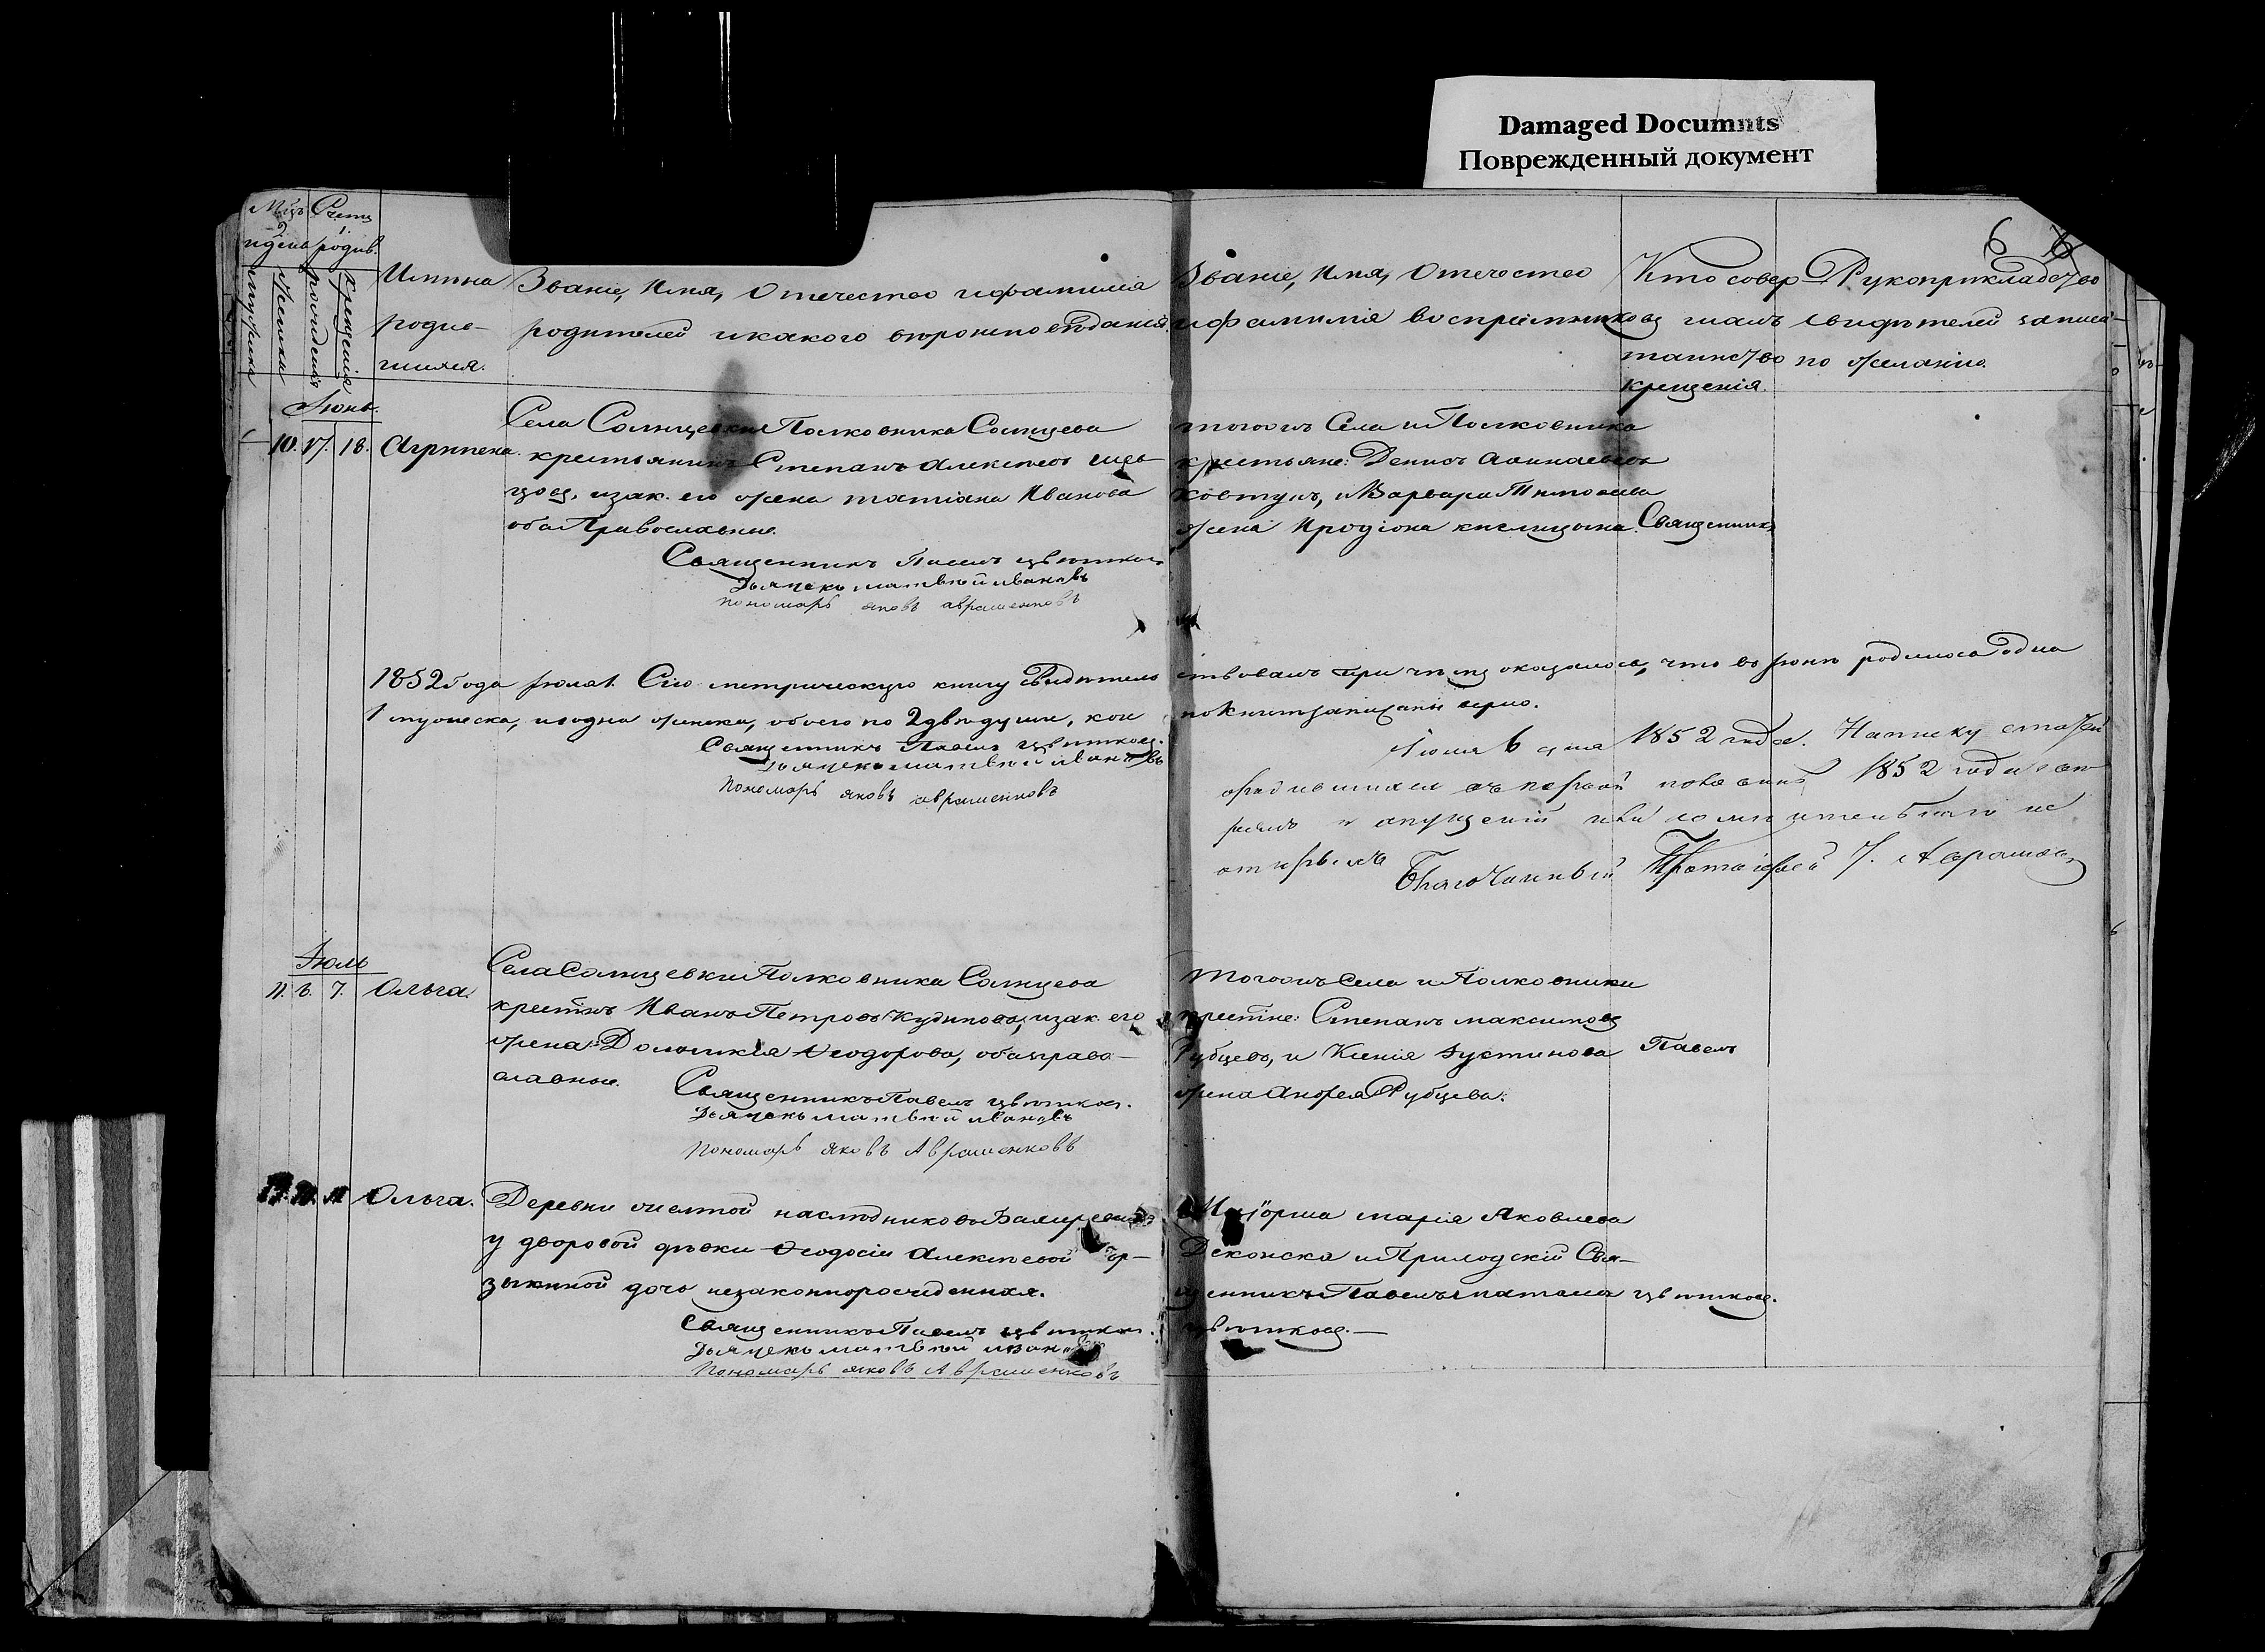 Damaged Documnts
Поврежденный документ
6 6
Счетъ родив.
мужеска
женска
рожденія
крещенія
Имяна родив-
шихся.
Званіе, Имя, Отечество и фамилія
родителей и какого вѣроисповѣданія.
Званіе, Имя, Отечество
и фамилія воспріемниковъ
Кто совер-
шалъ
таинство
крещенія.
Рукоприкладство
свидѣтелей записи
по желанію.
Іюнь.
10. 17. 18. Агрипена.
Села Солнцевки Полковника Солнцева
крестьянинъ Степанъ Алексѣевъ
и зак. его жена татіана Иванова
оба Православные.
Священникъ Павелъ цвѣтковъ
Дьячекъ матвѣй ивановъ
пономарь яковъ аврашенковъ
тогожъ Села и Полковника
крестьяне: Денисъ
Ковтунъ, и Варвара Тимофеева
жена Иродіона
Священникъ
1852 года Іюля 1. Сію метрическую книгу Свидѣтель
ствовалъ при чемъ оказалось, что во Іюнѣ родилось одна
1 мужеска, и одна женска, обоего по 2 двѣ души, кои
по книгѣ записаны верно.
Священникъ Павелъ цвѣтковъ.
Дьячекъ матвѣй ивановъ
Пономарь яковъ аврашенковъ
Іюля 6 дня 1852 года. Написку статей
о родившихся въ первой половинѣ 1852 года
и опущеній или сомнительнаго не
открылъ
Благочинный Протоіерей
Іюль
11. 6. 7. Ольга.
Села Солнцевки Полковника Солнцева
крестнъ Иванъ Петровъ Кудиновъ, и зак. его
жена Домникія Ѳеодорова, оба право-
славные.
Священникъ Павелъ цвѣтковъ.
Дьячекъ матвѣй ивановъ
Пономарь яковъ Аврашенковъ
тогожъ Села и Полковника
крестяне: Степанъ максимовъ
Рубцевъ, и Ксенія Іустинова
жена Андрея Рубцева.
Павелъ
Ольга.
Деревни наслѣдниковъ
у дворовой дѣвки Ѳеодосіи Алексѣевой
дочь незаконнорожденная.
Священникъ Павелъ цвѣтковъ.
Дьячекъ матвѣй ивановъ
Пономарь яковъ Аврашенковъ
Маіорша марія Яковлева
Деконска и Приходскій Свя-
щенникъ Павелъ
цвѣтковъ.
цвѣтковъ.